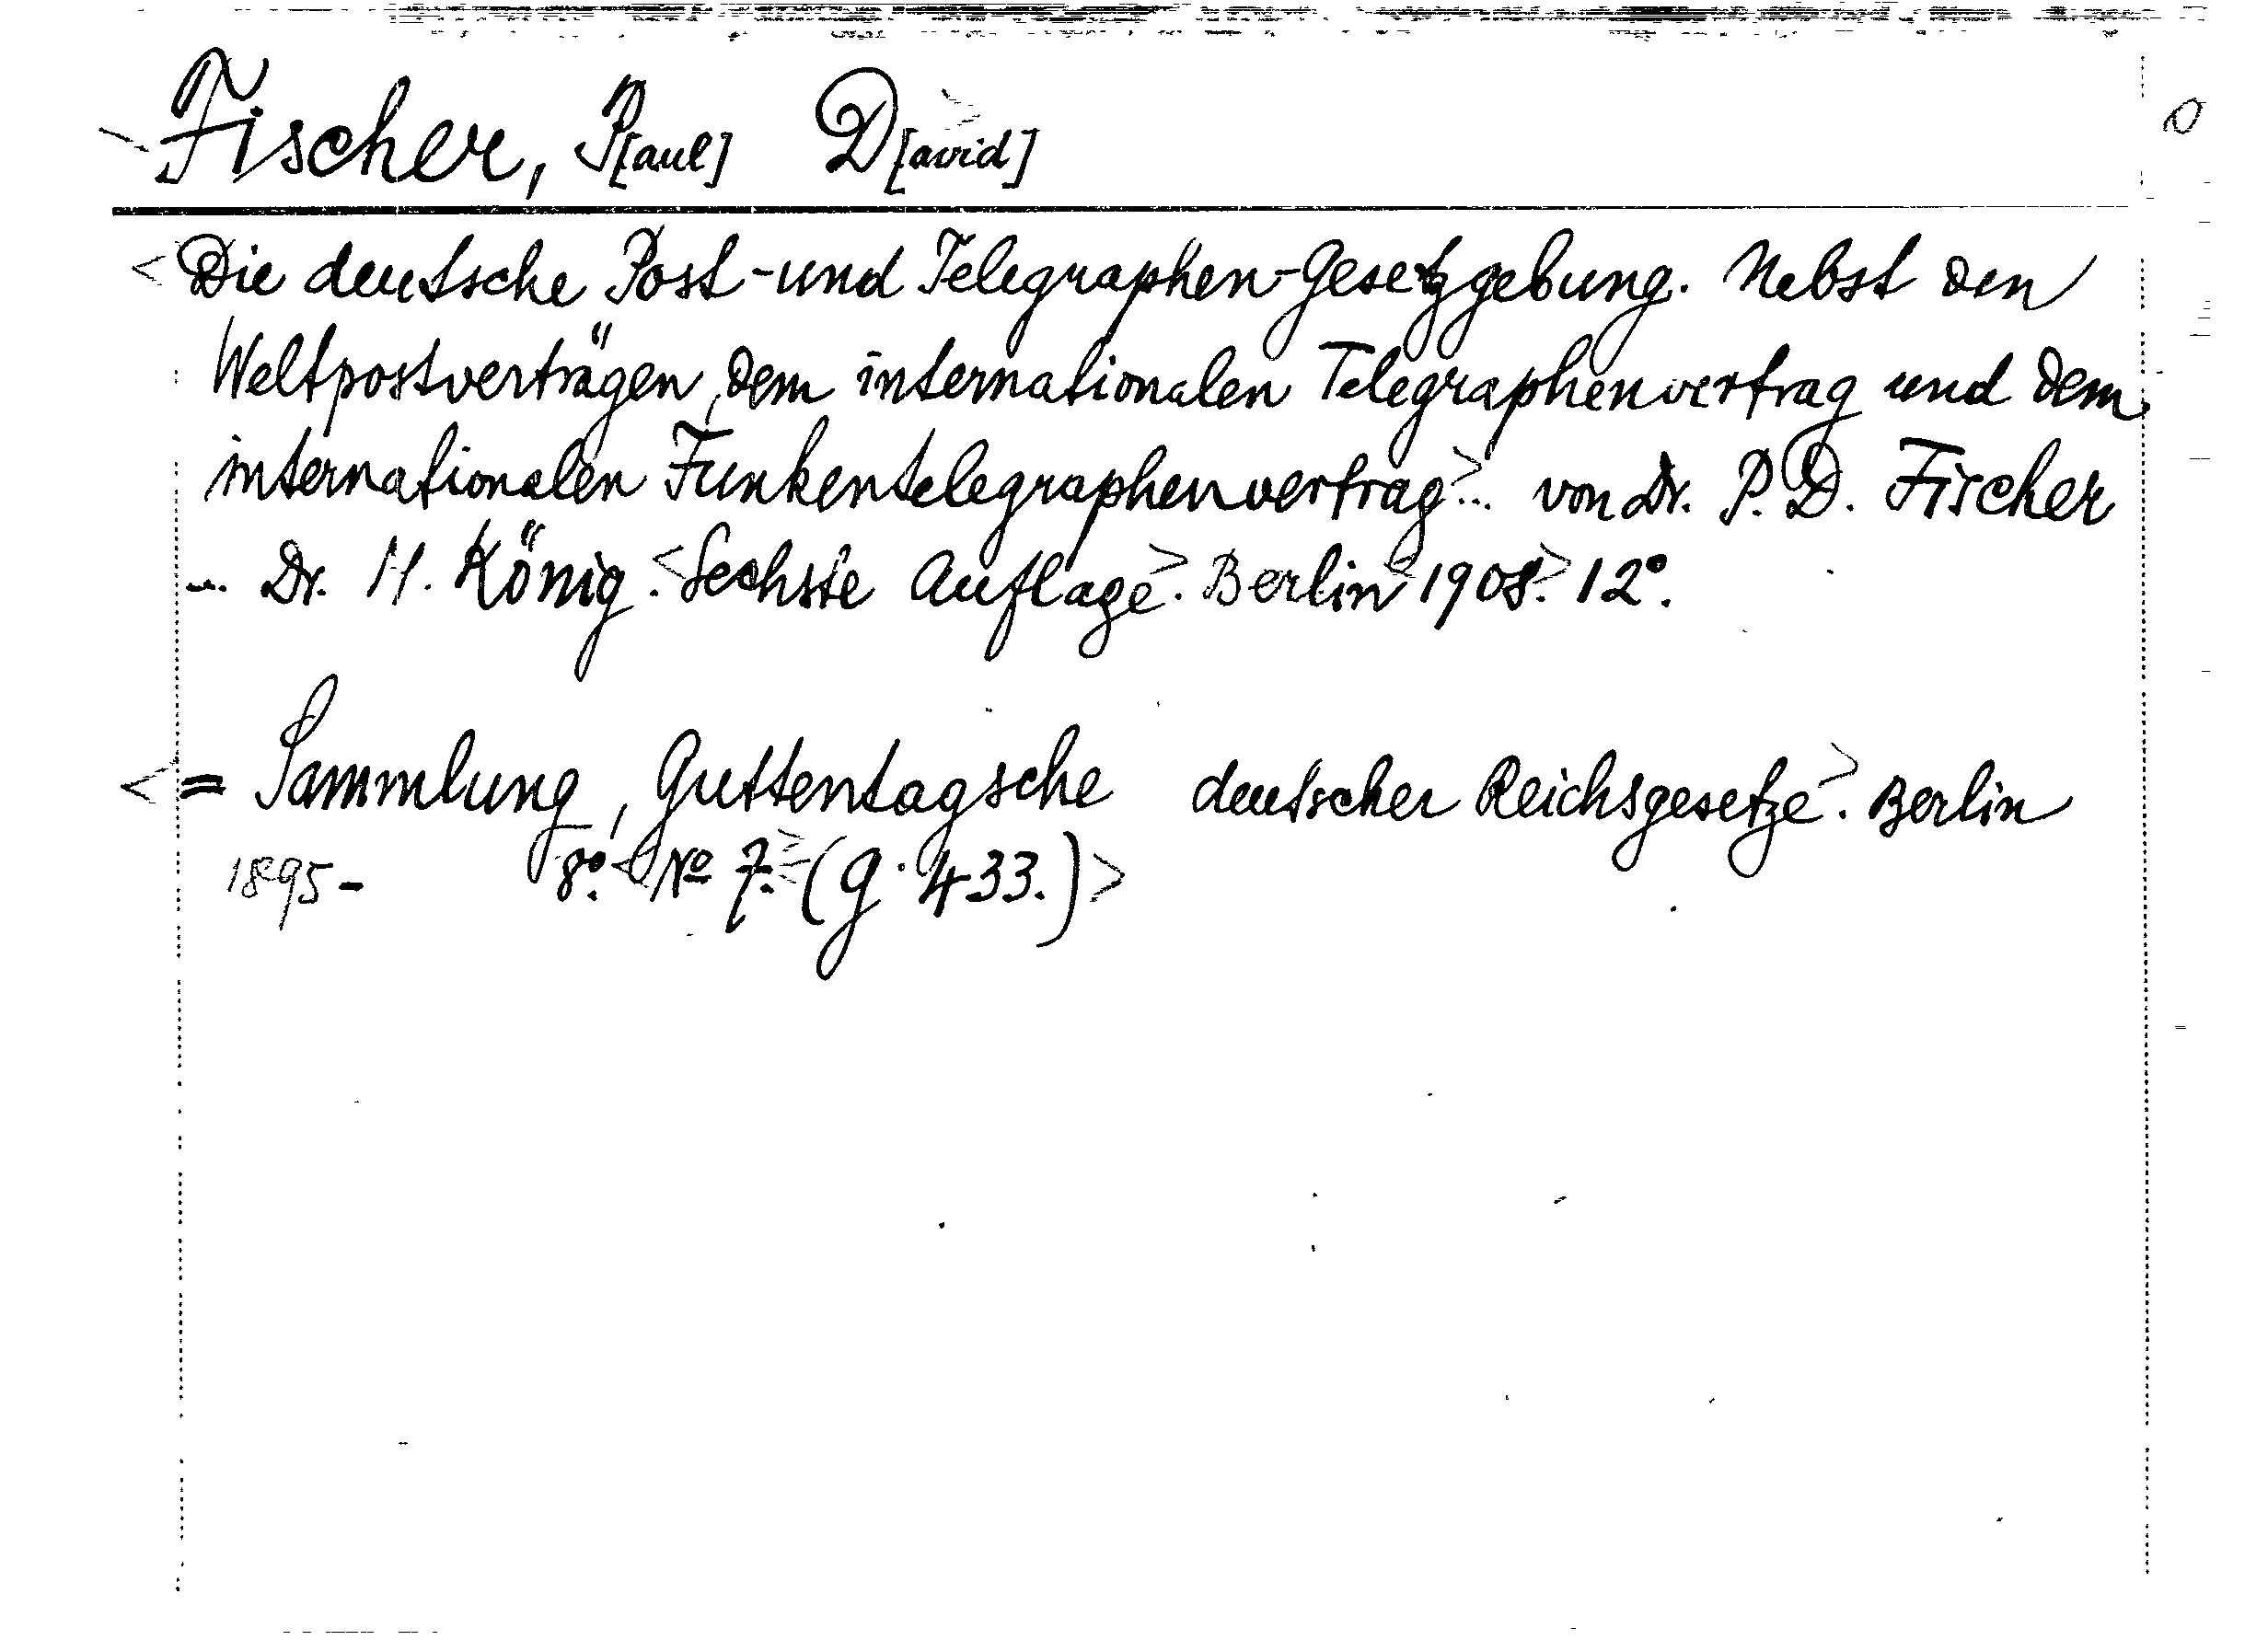 Fischer, P[aul] D[avid]
<Die deutsche Post-und Telegraphen-Gesetzgebung. Nebst den
Weltpostverträgen, dem internationalen Telegraphenvertrag und dem
internationalen Funkentelegraphenvertrag>... von Dr. P. D. Fischer
... Dr. H. König. <Sechste Auflage>. Berlin <1908>. 12°.
<= Sammlung, Guttentagsche deutscher Reichsgesetze>. Berlin
1895- 8°. <No 7.> (g. 433.)>